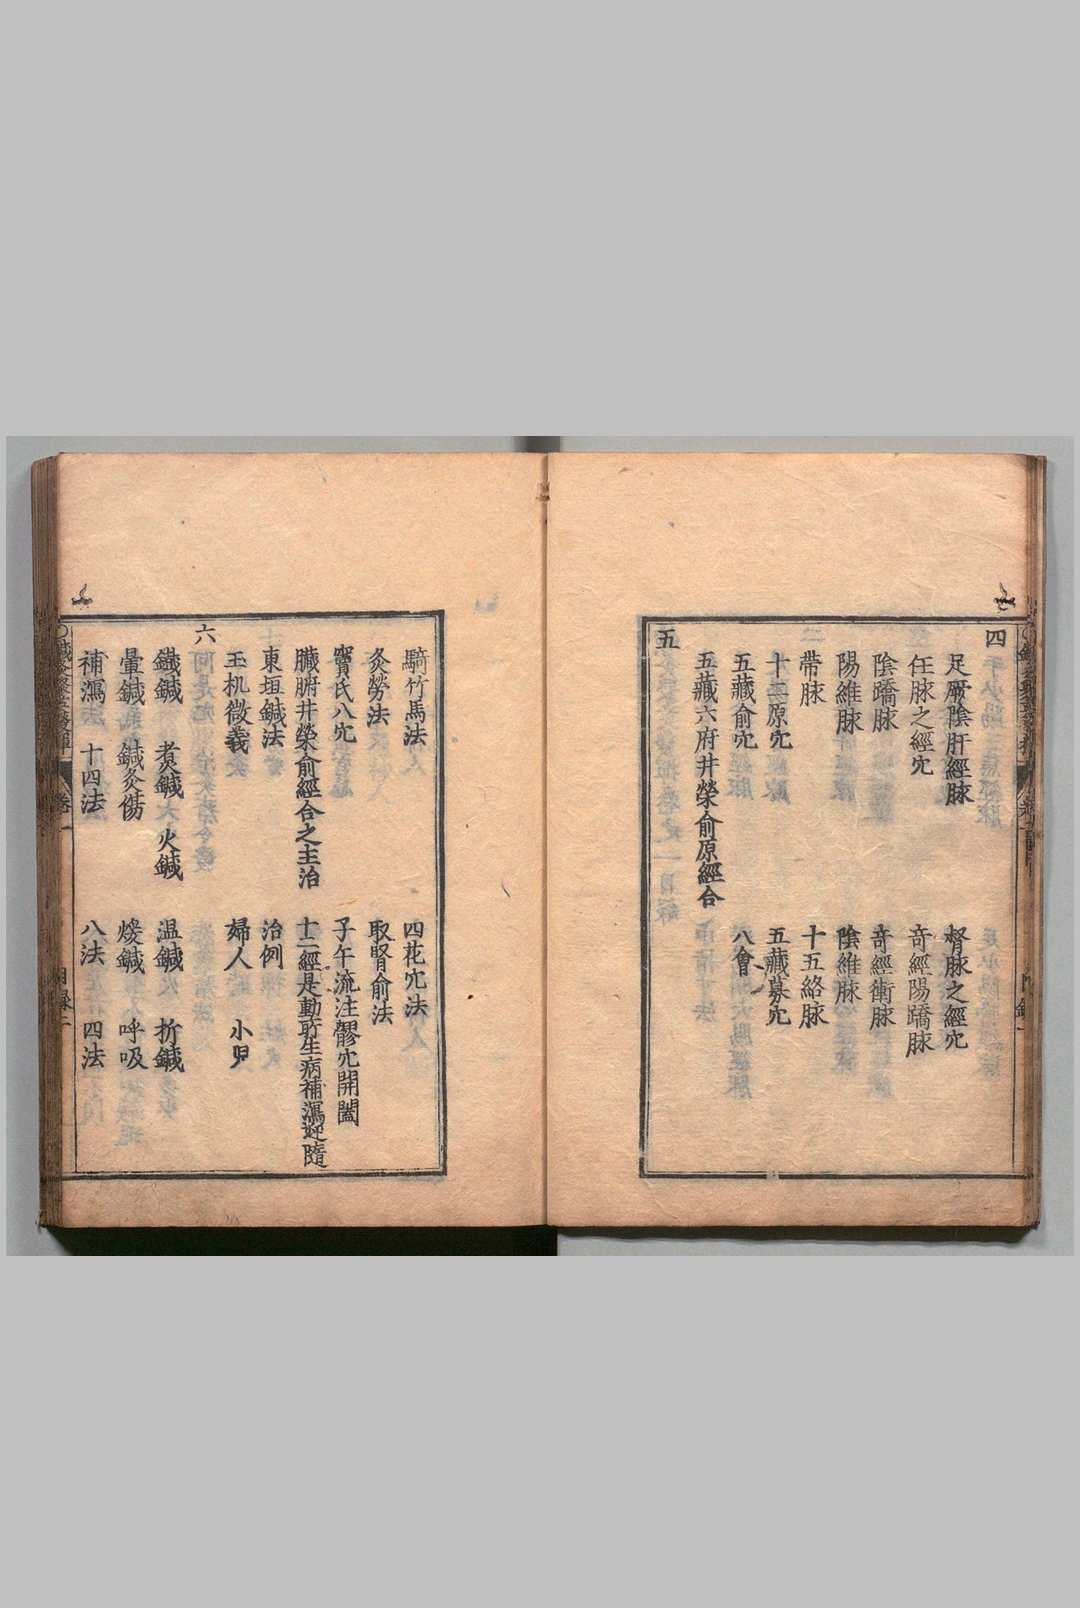 足厥陰肝經脉 督脉之經穴
任脉之經穴 奇經陽蹻脉
陰蹻脉 奇經衝脉
陽維脉 陰維脉
帶脉 十五絡脉
四
十二原穴 五藏募穴
五藏俞穴 八會
五藏六府井榮俞原經合
五
騎竹馬法 四花穴法
灸勞法 取腎俞法
竇氏八穴 子午流注髎穴開闔
臟腑井榮俞經合之主治 十二經是動所生病補瀉迎隨
東垣鍼法 治例
玉机微義 婦人 小児
六
鐵鍼 煮鍼 火鍼 温鍼 折鍼
暈鍼 鍼灸傷 煖鍼 呼吸
補瀉 十四法 八法 四法